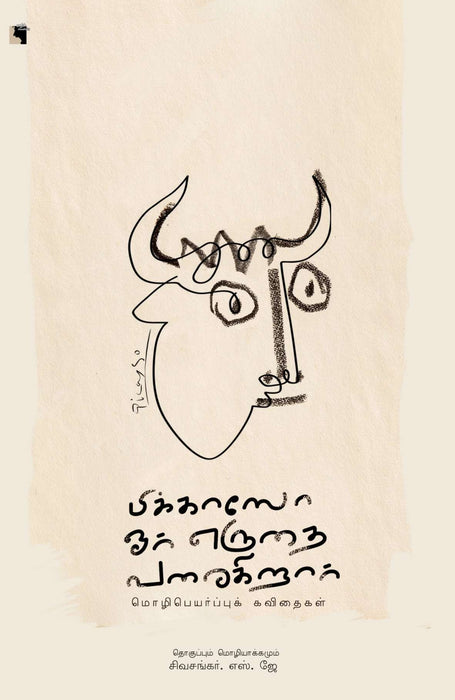 Picasso
பிக்காஸோ
ஓர் எருதை
வரைகிறார்
மொழிபெயர்ப்புக் கவிதைகள்
தொகுப்பும் மொழியாக்கமும்
சிவசங்கர். எஸ். ஜே